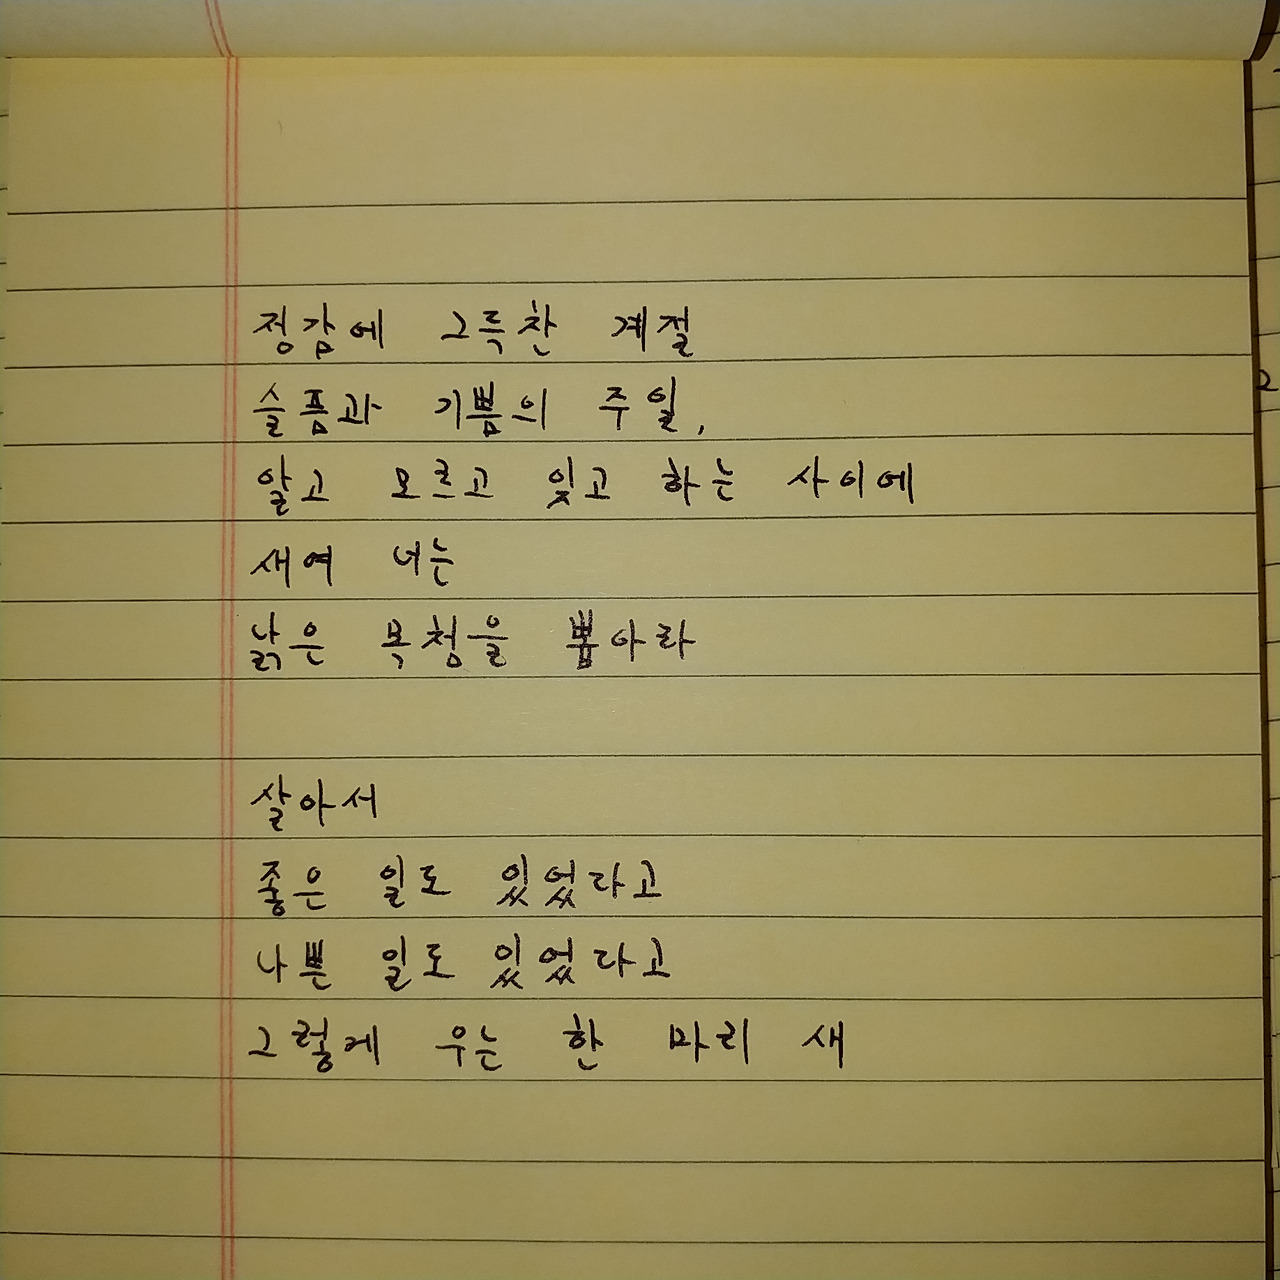 정감에 그득찬 계절
슬픔과 기쁨의 주일,
알고 모르고 잊고 하는 사이에
새여 너는
낡은 목청을 뽑아라
살아서
좋은 일도 있었다고
나쁜 일도 있었다고
그렇게 우는 한 마리 새
2